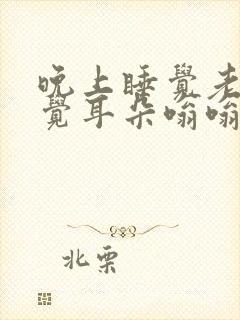 晚上睡覺老
覺耳朵嗡嗡
北栗